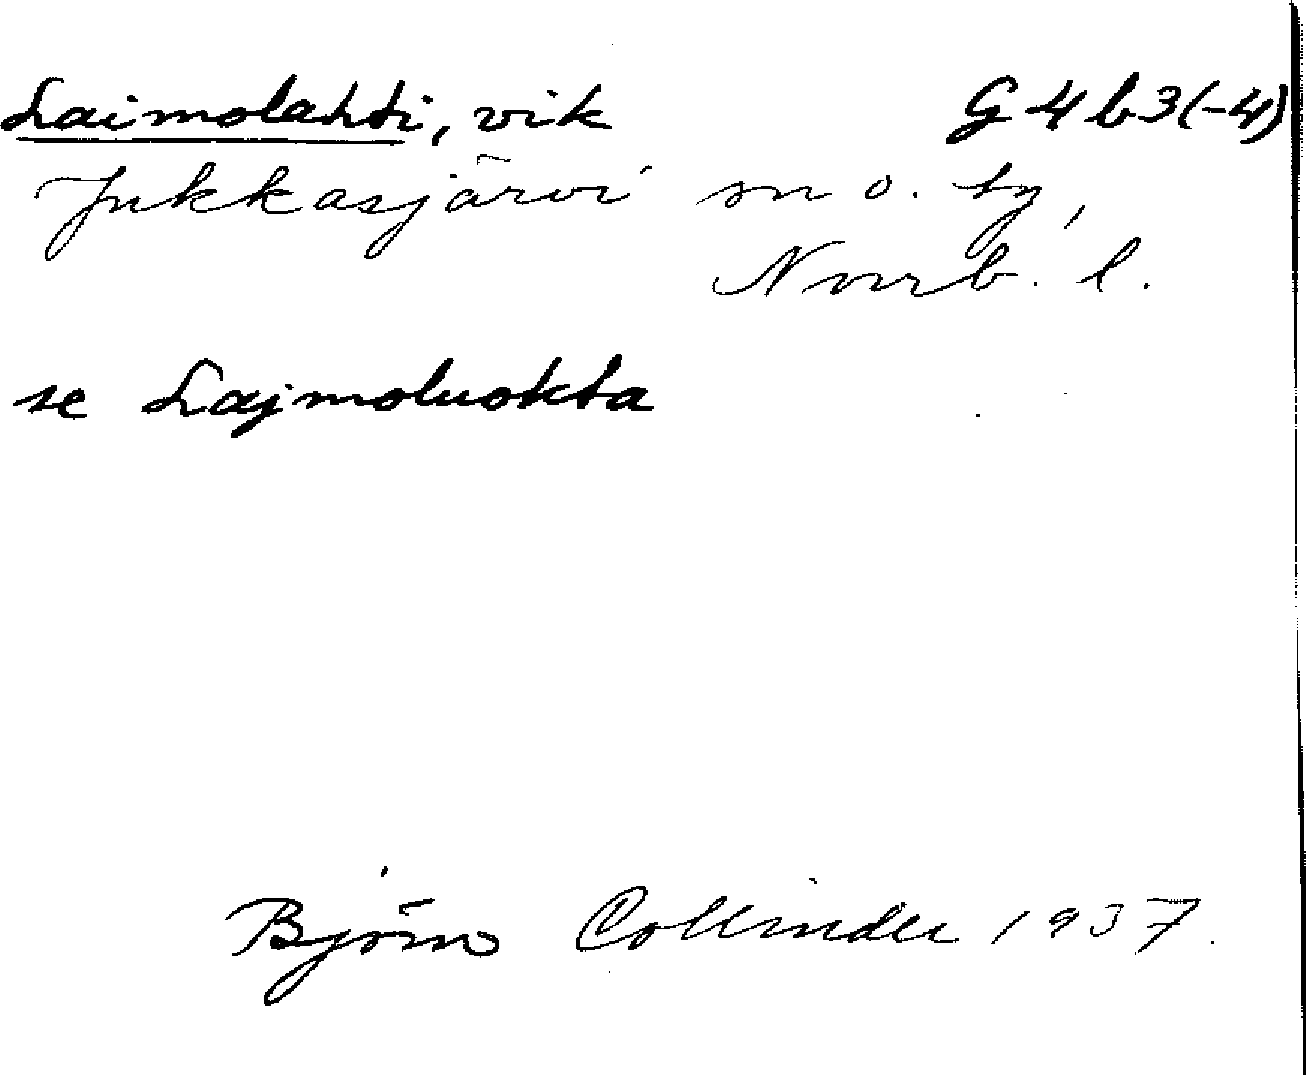 Laimolahti, vik G4b3(-4)
Jukkasjärvi sn o. ty,
Norrb. l.
se Lajmoluokta
Björn Collinder 1937.